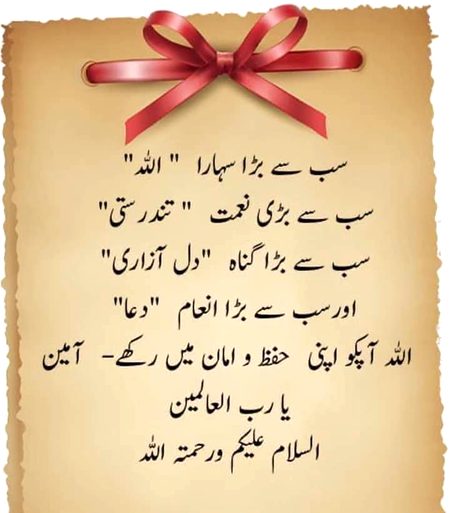 سب سے بڑا سہارا " اللہ"
سب سے بڑی نعمت " تندرستی"
سب سے بڑا گناہ "دل آزاری"
اورسب سے بڑا انعام "دعا"
اللہ آپکو اپنی حفظ و امان میں رکھے- آمین
یا رب العالمین
السلام علیکم ورحمتہ اللہ